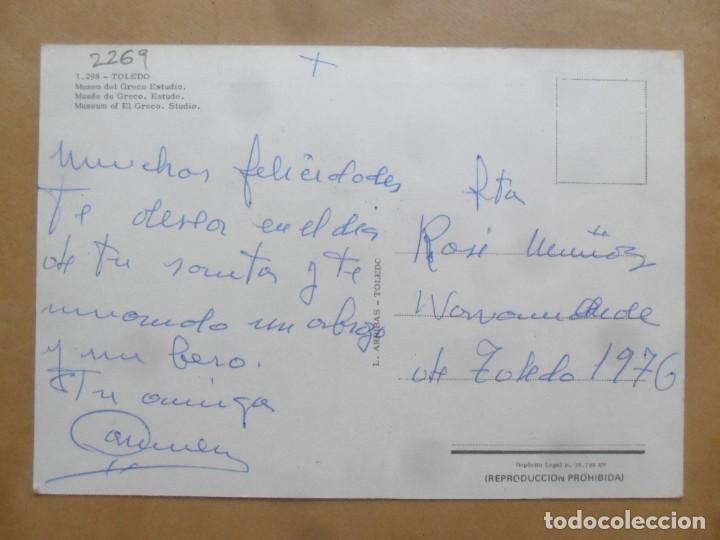 2269
1.298 - TOLEDO
Museo del Greco Estudio.
Musée du Greco. Estude.
Museum of El Greco. Studio.
Muchas felicidades
Te desea en el dia
de tu santa y te
mando un abrazo
y un beso.
Tu amiga
Carmen
L. ARRIBAS - TOLEDO
Rta
Rosi Muñoz
de Toledo 1976
Depósito Legal B.
(REPRODUCCION PROHIBIDA)
todocoleccion.net